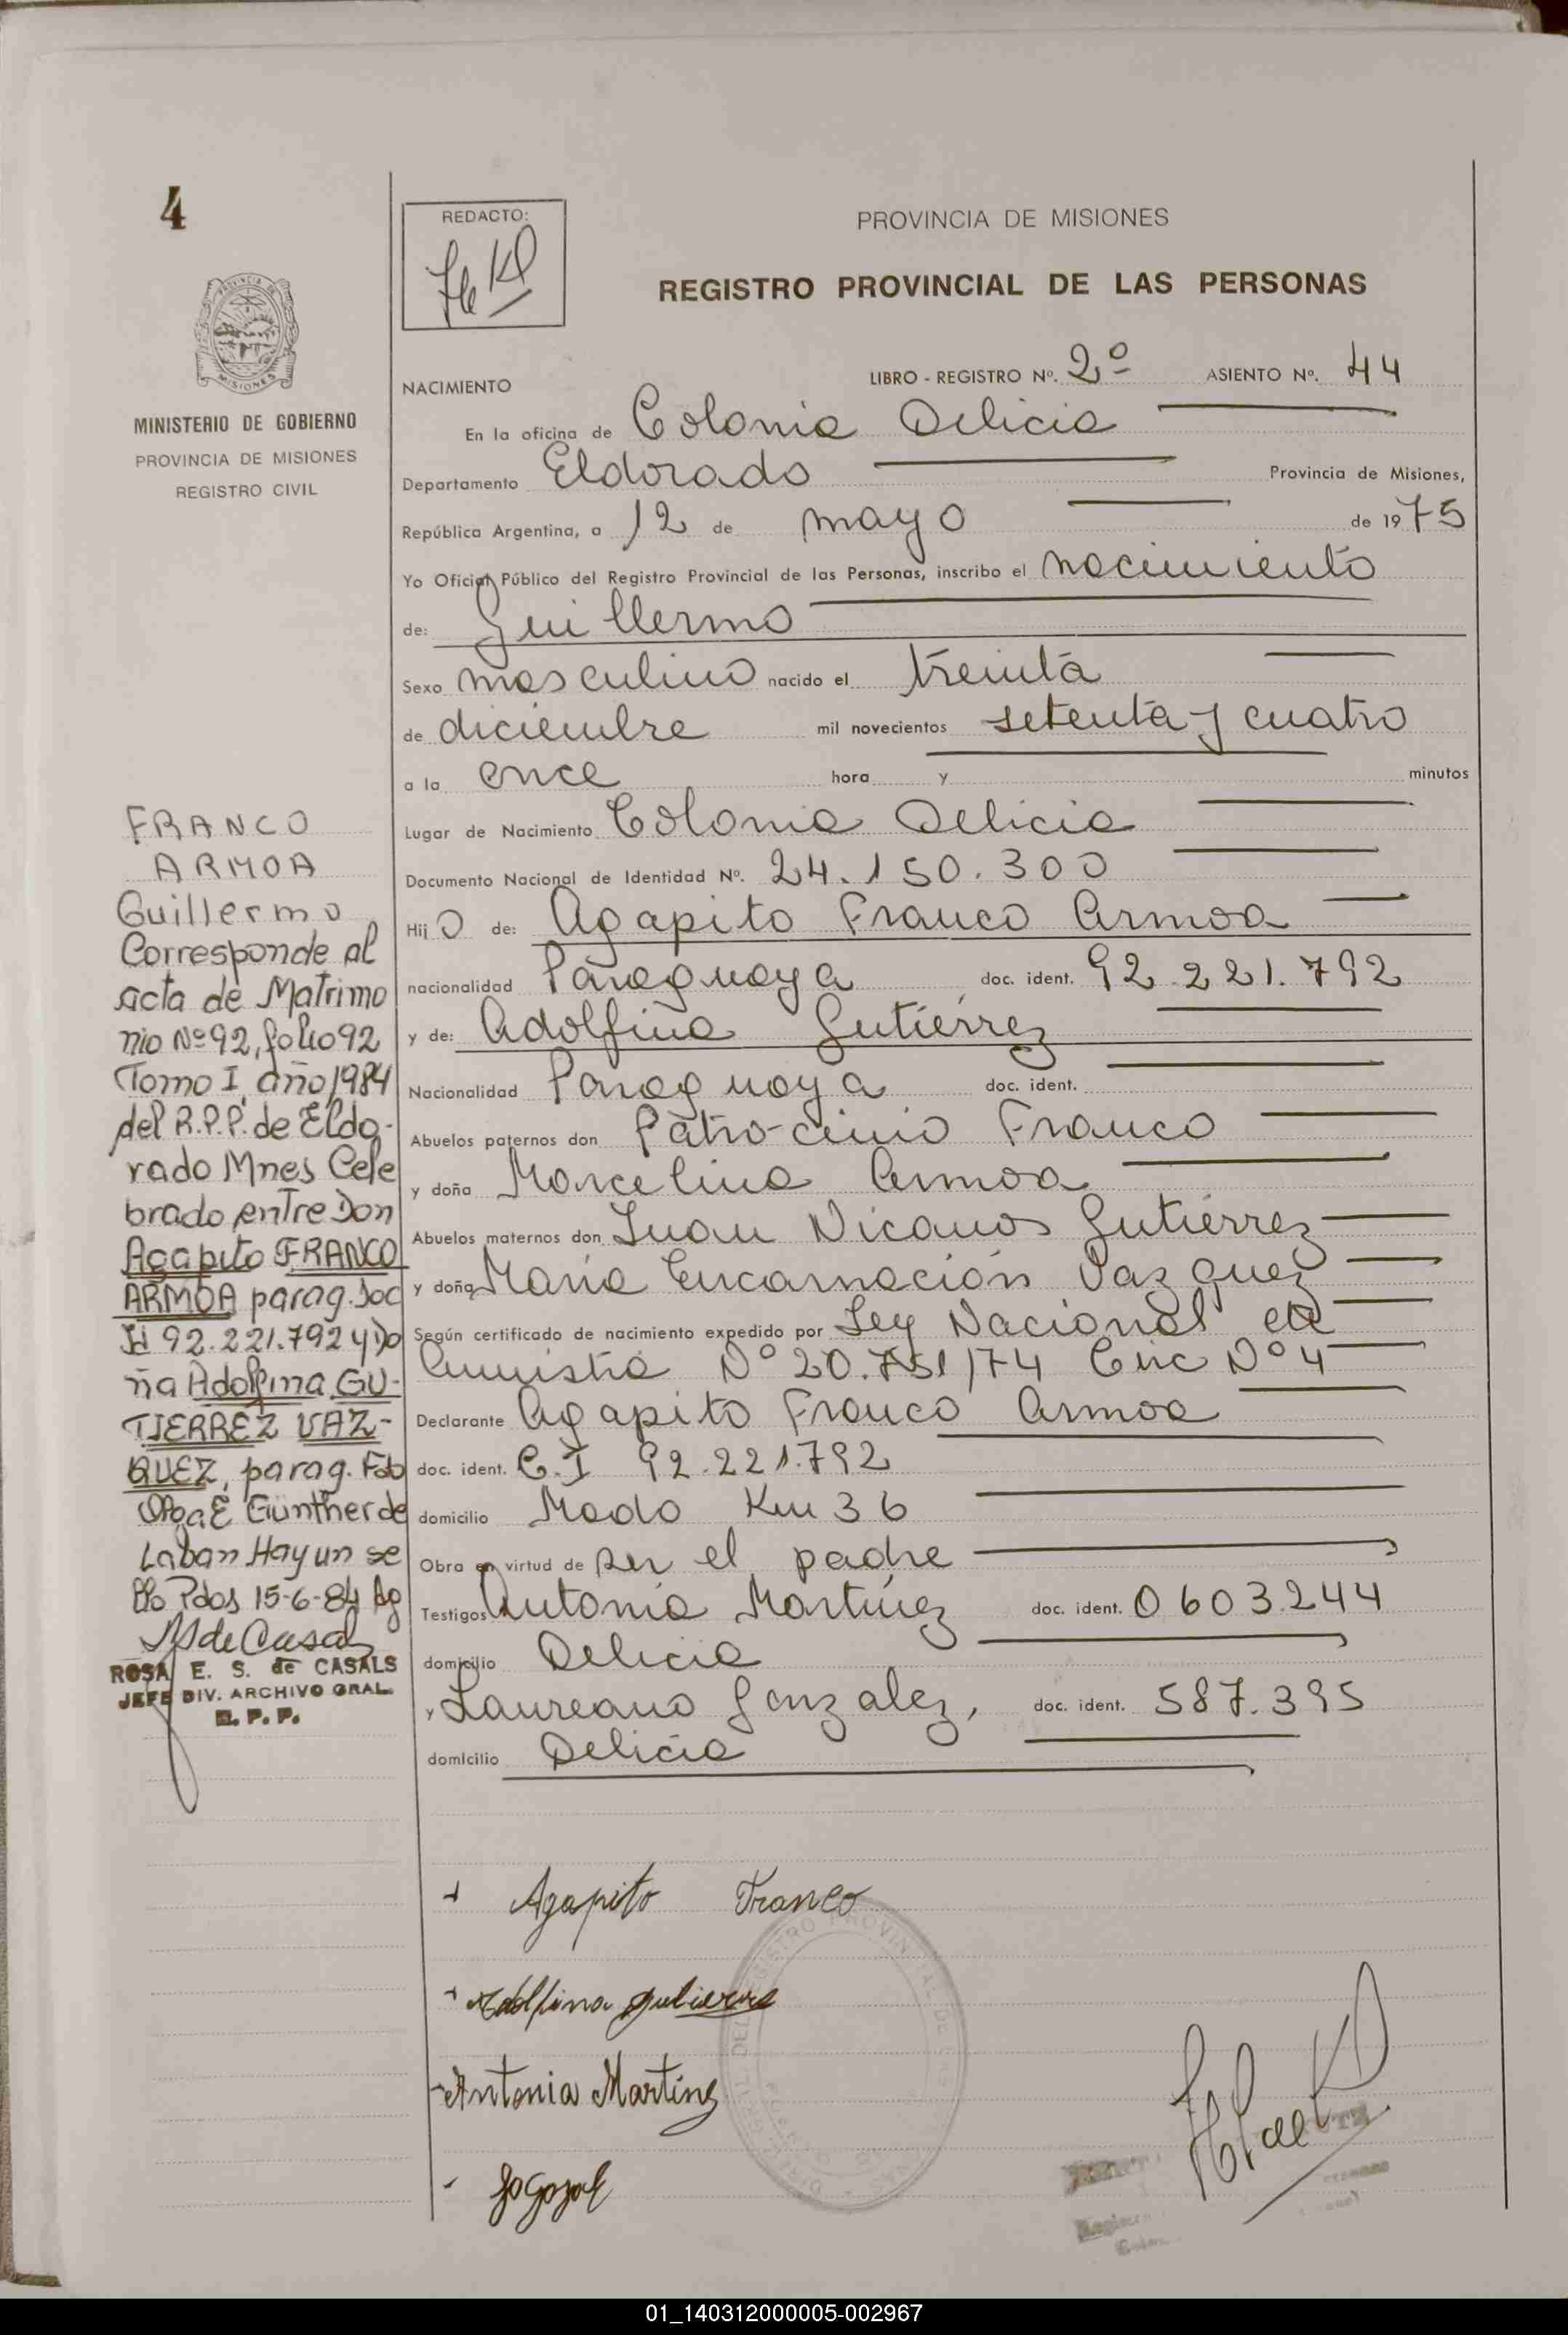 4
REDACTO:
PROVINCIA DE MISIONES
REGISTRO PROVINCIAL DE LAS PERSONAS
MISIONES
MINISTERIO DE GOBIERNO
PROVINCIA DE MISIONES
REGISTRO CIVIL
NACIMIENTO
LIBRO - REGISTRO Nº. 2º ASIENTO Nº. 44
En la oficina de Colonia Delicia
Departamento Eldorado Provincia de Misiones,
República Argentina, a 12 de mayo de 1975
Yo Oficial Público del Registro Provincial de las Personas, inscribo el nacimiento
de: Guillermo
Sexo masculino nacido el treinta
de diciembre mil novecientos setenta y cuatro
a la once hora y minutos
Lugar de Nacimiento Colonia Delicia
Documento Nacional de Identidad Nº. 24.150.300
Hijo de: Agapito Franco Armoa
nacionalidad Paraguaya doc. ident. 92.221.792
y de: Adolfina Gutiérrez
Nacionalidad Paraguaya doc. ident.
Abuelos paternos don Patro-cinio Franco
y doña Marcelina Armoa
Abuelos maternos don Juan Nicanor Gutiérrez
y doña María Encarnación Vazquez
Según certificado de nacimiento expedido por Ley Nacional de
Amnistía Nº 20.751/74 Circ Nº 4
Declarante Agapito Franco Armoa
doc. ident. C.I 92.221.792
domicilio Mado Km 36
Obra en virtud de ser el padre
Testigos Antonia Martínez doc. ident. 0603.244
domicilio Delicia
y Laureano Gonzalez, doc. ident. 587.395
domicilio Delicia
FRANCO
ARMOA
Guillermo
Corresponde al
acta de Matrimo
nio Nº 92, folio 92
Tomo I, año 1984
del R.P.P. de Eldo-
rado Mnes Cele
brado entre Don
Agapito FRANCO
ARMOA parag. Doc
Id 92.221.792 y Do
ña Adolfina GU-
TIERREZ VAZ-
QUEZ, parag. Fdo
Olga E Günther de
Laban Hay un se
llo Pdas 15-6-84
ROSA E. S. de CASALS
JEFE DIV. ARCHIVO GRAL.
R. P. P.
Agapito Franco
Adolfina Gutierre
Antonia Martinz
01_140312000005-002967